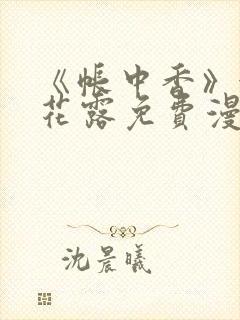 《帐中香》
花露免费漫
沈晨曦